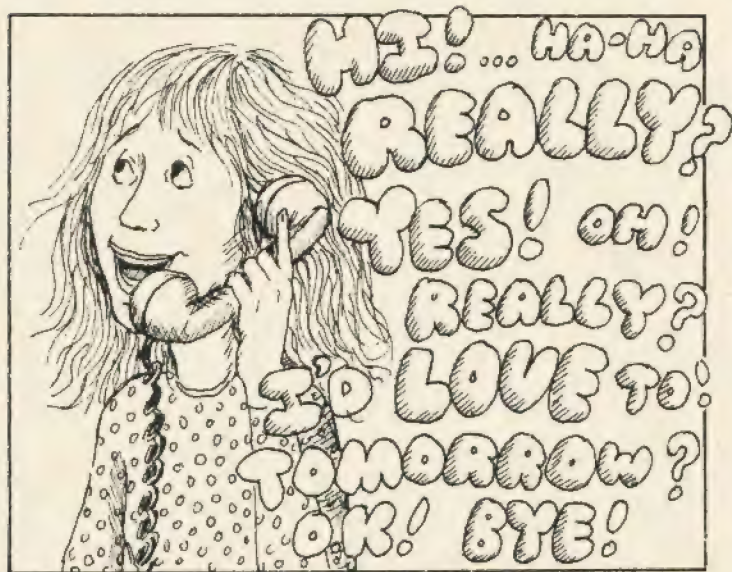 HI!... HA-HA
REALLY?
YES! OH!
REALLY?
I'D LOVE TO!
TOMORROW?
OK! BYE!